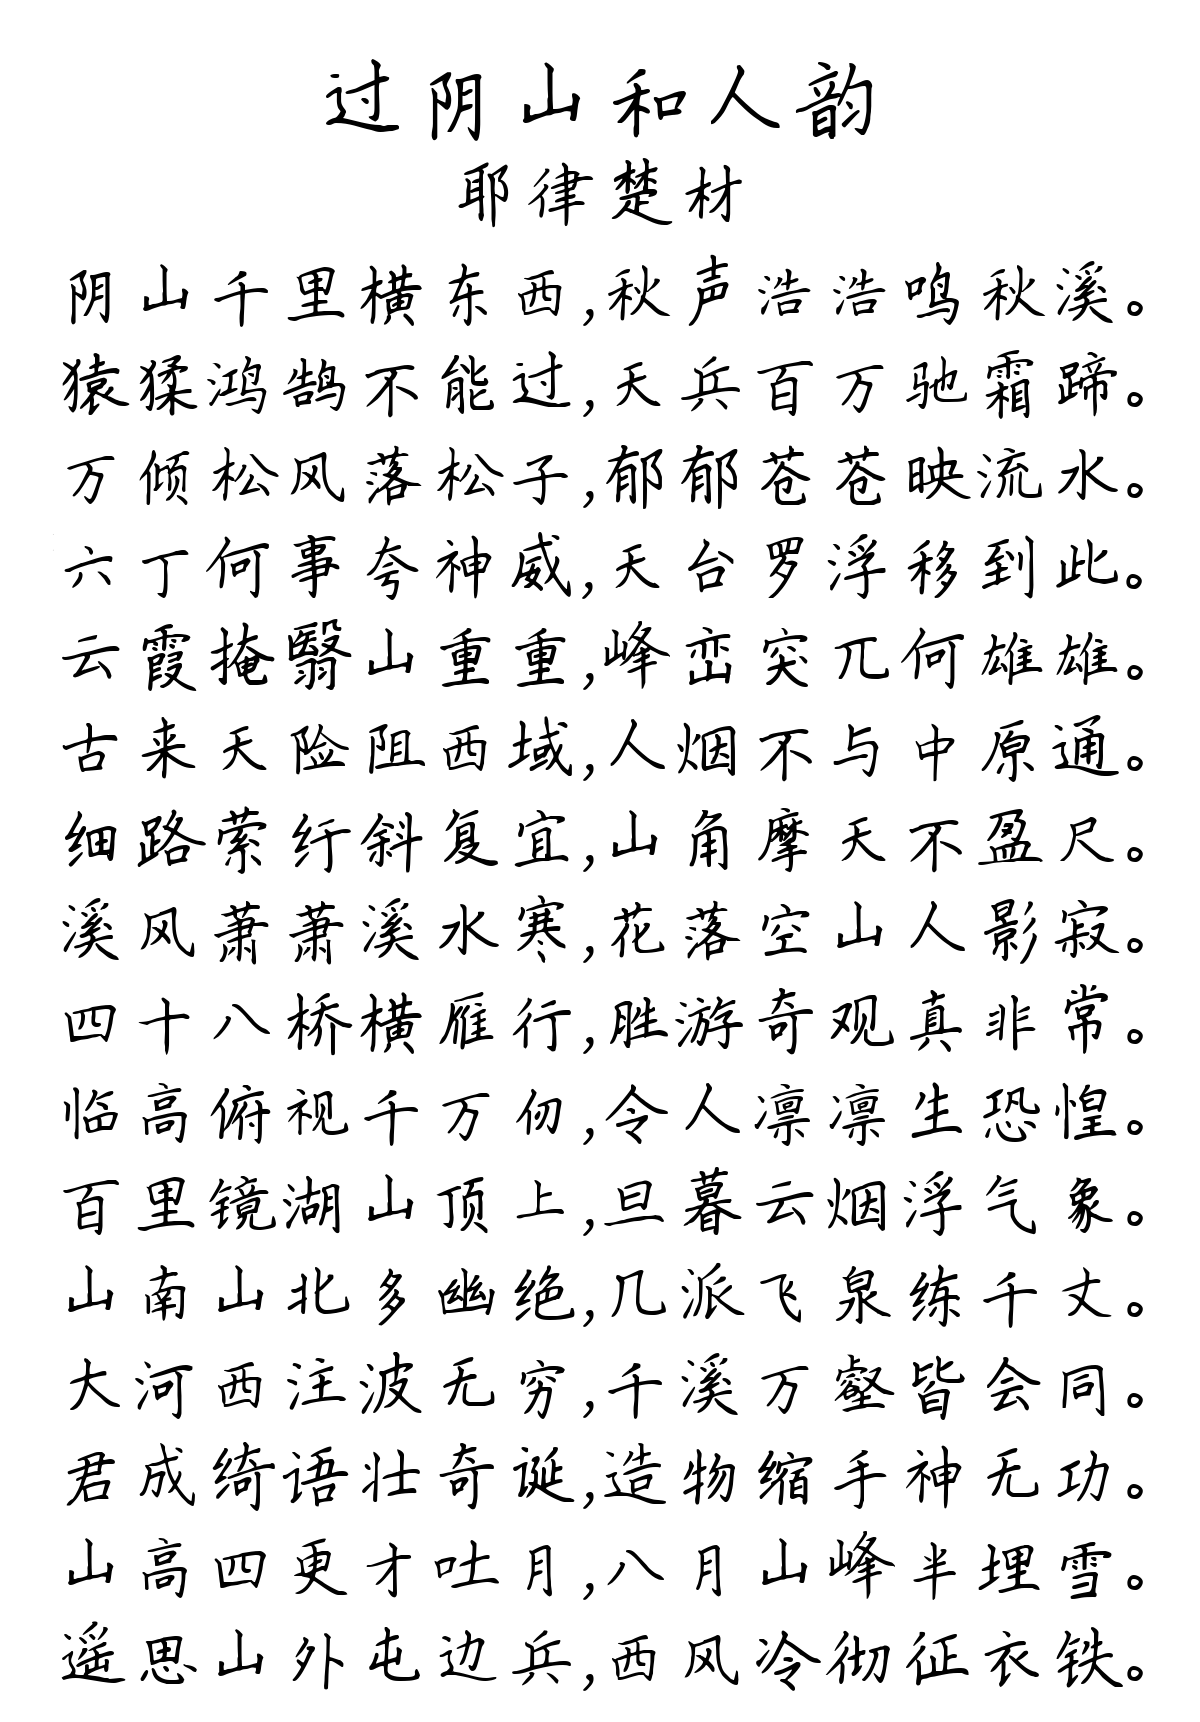 过阴山和人韵
耶律楚材
阴山千里横东西,秋声浩浩鸣秋溪。
猿猱鸿鹄不能过,天兵百万驰霜蹄。
万倾松风落松子,郁郁苍苍映流水。
六丁何事夸神威,天台罗浮移到此。
云霞掩翳山重重,峰峦突兀何雄雄。
古来天险阻西域,人烟不与中原通。
细路萦纡斜复宜,山角摩天不盈尺。
溪风萧萧溪水寒,花落空山人影寂。
四十八桥横雁行,胜游奇观真非常。
临高俯视千万仞,令人凛凛生恐惶。
百里镜湖山顶上,旦暮云烟浮气象。
山南山北多幽绝,几派飞泉练千丈。
大河西注波无穷,千溪万壑皆会同。
君成绮语壮奇诞,造物缩手神无功。
山高四更才吐月,八月山峰半埋雪。
遥思山外屯边兵,西风冷彻征衣铁。